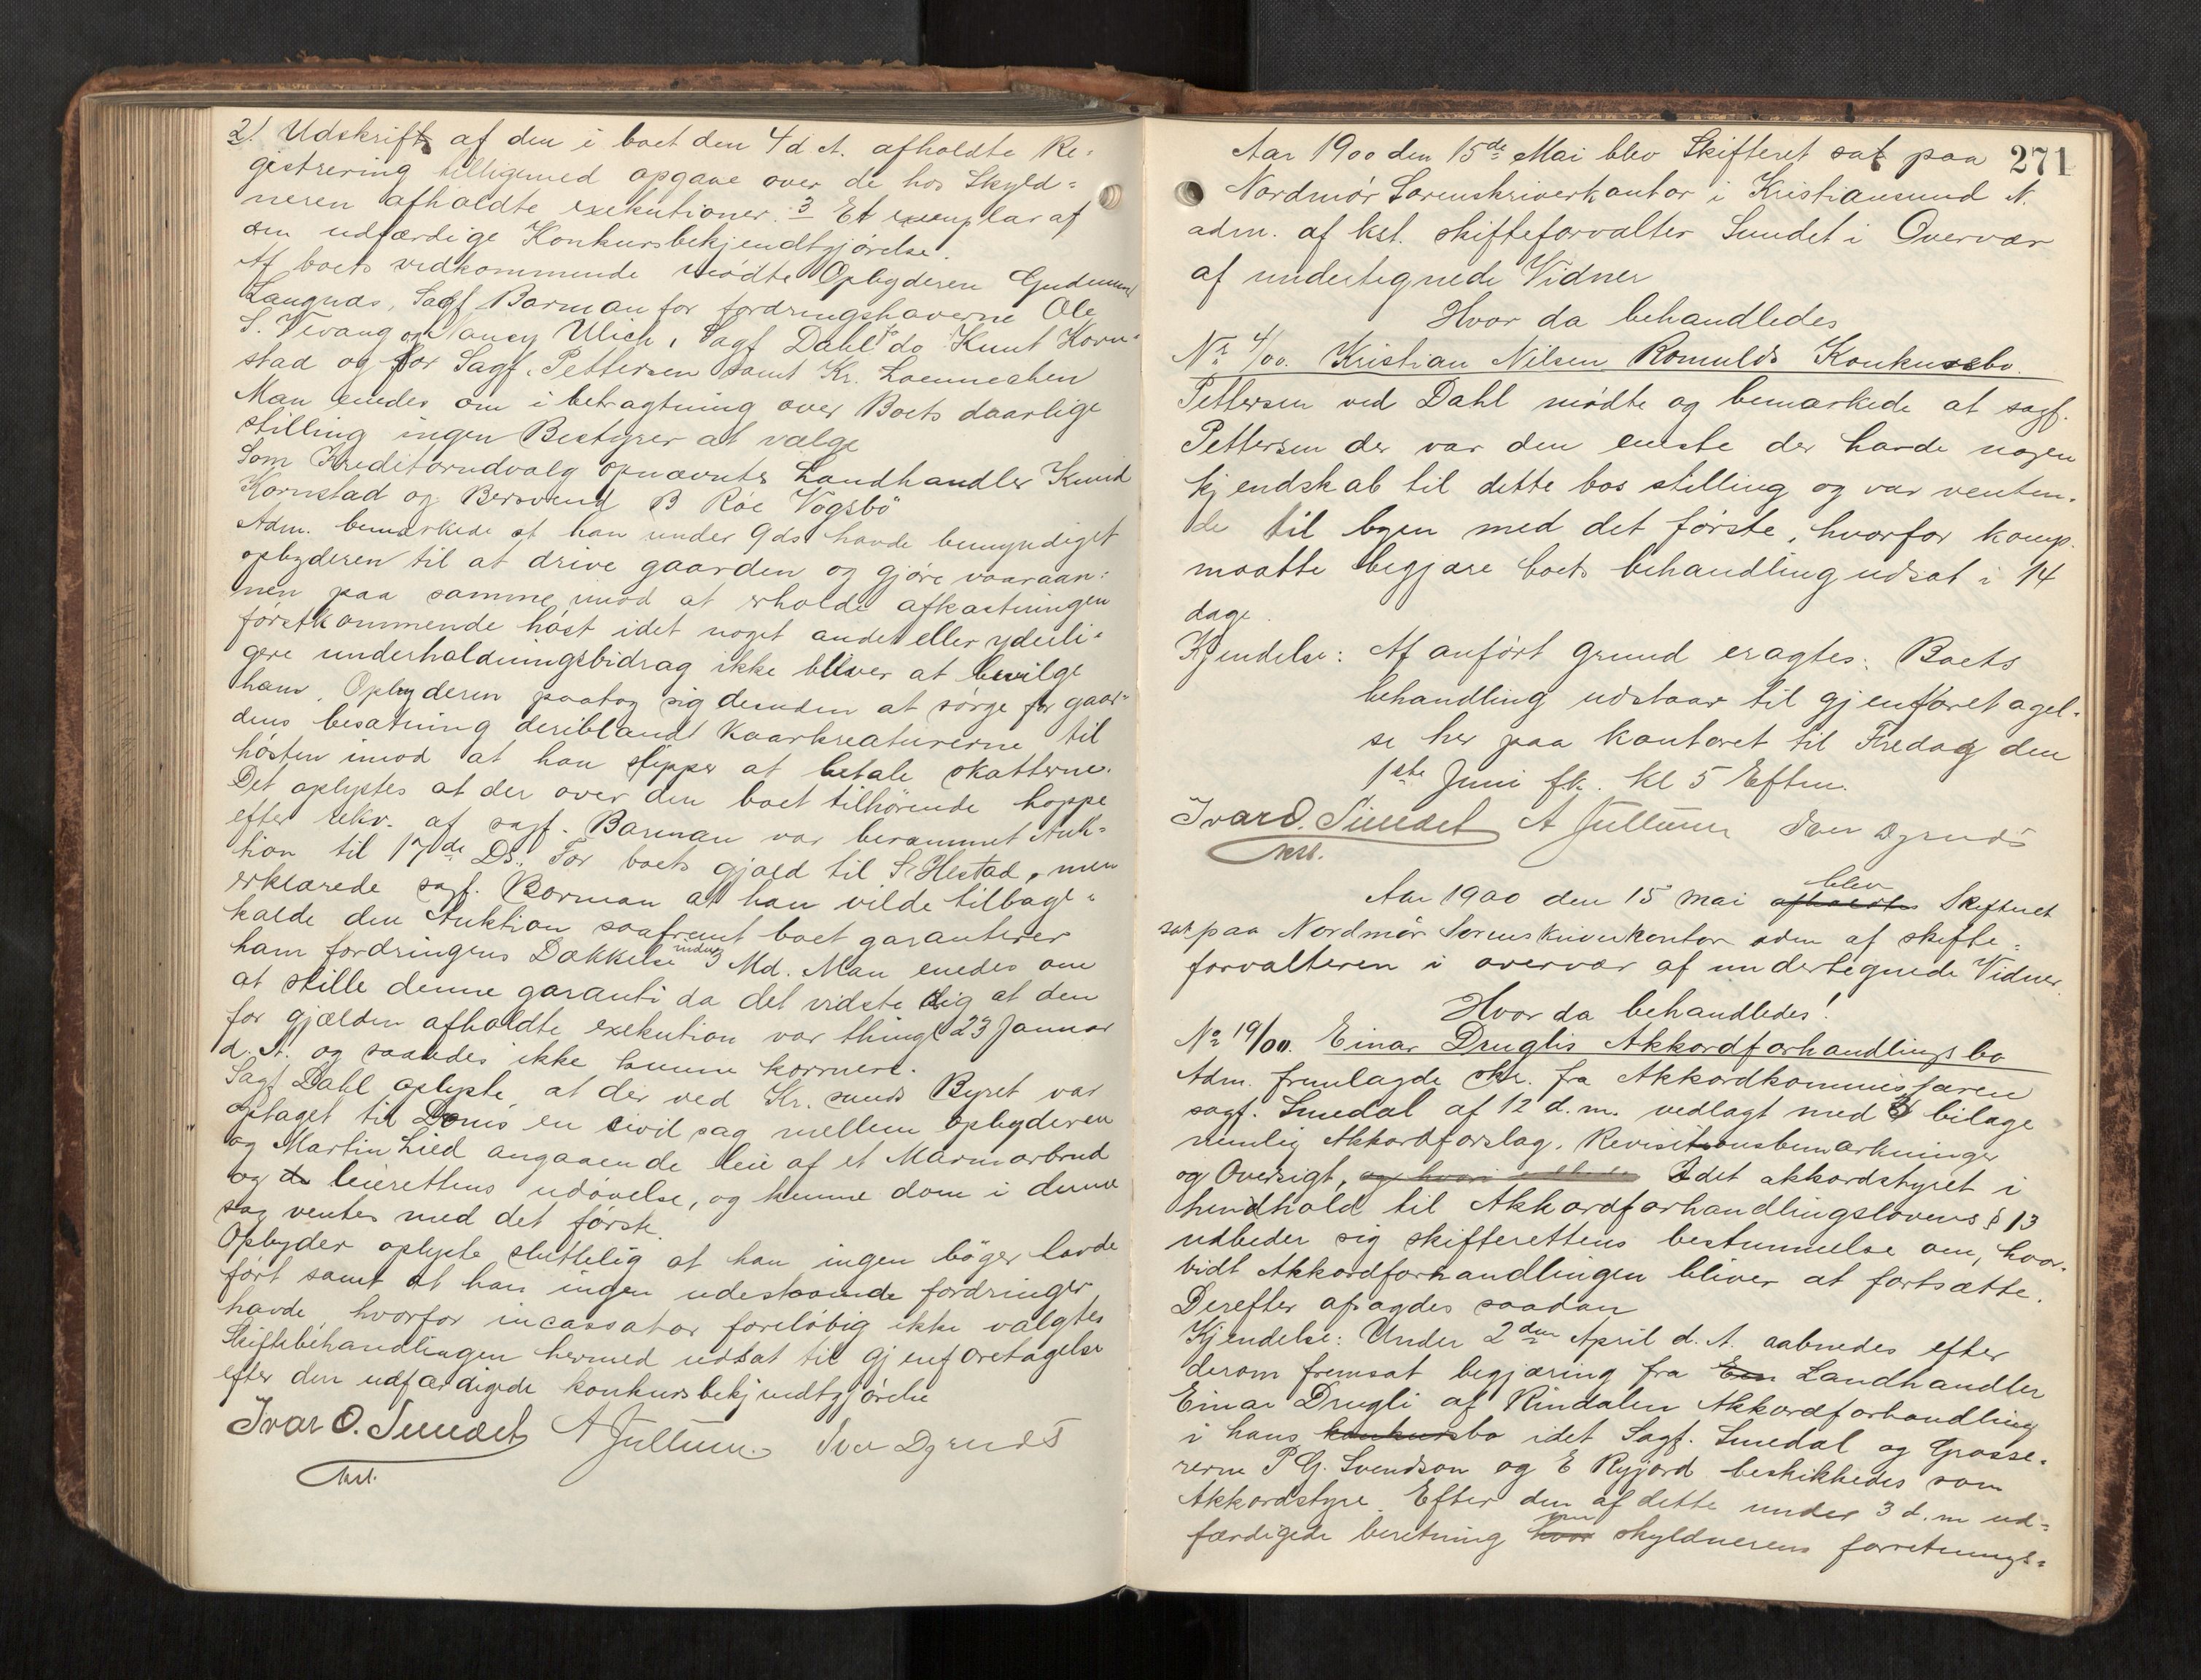 2/. Udskrift af den i boet den 4 d. A. afholdte Re-
gistrering tilligemed opgave over de hos Skyld-
neren afholdte exekutioner. 3 Et exemplar af
den udfærdige Konkursbekjendtgjørelse.
Af boets vedkommende mødte Opbyderen Gudmund
Langnæs, Sagf Barman for fordringshaverne Ole
S. Vevang og Nancy Ulich, Sagf Dahl fo do Knut Korn-
stad og for Sagf. Pettersen samt Kr. Loennechen
Man enedes om i betragtning over Boets daarlige
stilling ingen Bestyrer at vælge
Som Kreditorudvalg opnævntes Landhandler Knud
Kornstad og Bersvend B Röe Vogsbö
Adm. bemærkede at han under 9 ds havde bemyndiget
opbyderen til at drive gaarden og gjöre vaaraan-
nen paa samme imod at erholde afkastningen
förstkommende höst idet noget andet eller yderli-
gere underholdningsbidrag ikke bliver at bevilge
ham. Opbyderen paatog sig desuden at sörge for gaar-
dens besætning deriblandt Kaarkreaturerne til
hösten imod at han slipper at betale skatterne.
Det oplystes at der over den boet tilhörende hoppe
efter rekv. af sagf. Barman var berammet Auk-
tion til 17de Ds. For boets gjæld til S. Hestad, men
erklærede sagf. Barman at han vilde tilbage-
kalde den Auktion saafremt boet garanterer
ham fordringens Dækkelse inden 3 Md. Man enedes om
at stille denne garanti da det vidste sig at den
for gjælden afholdte exekution var thingl 23 Januar
d. A. og saaledes ikke kunne korrueres.
Sagf Dahl oplyste at der ved Kr. sunds Byret var
optaget til Doms en civil sag mellem opbyderen
og Martin Lied angaaende leie af et Marmorbrud
og leierettens udövelse, og kunne dom i denne
sag ventes med det förste.
Opbyder oplyste sluttelig at han ingen böger havde
fört samt at han ingen udestaaende fordringer
havde, hvorfor incassator forelöbig ikke valgtes
Skiftebehandlingen hermed udsat til gjenforetagelse
efter den udfærdigede konkursbekjendtgjörelse
Ivar O. Sundet A Jullum Iver Dyrnæs
kst.
271
Aar 1900 den 15de Mai blev Skifteret sat paa
Nordmör Sorenskriverkontor i Kristiansund N.
adm. af kst. skifteforvalter Sundet i Overvær
af undertegnede Vidner
Hvor da behandledes
Nr 4/00. Kristian Nilsen Romulds Konkursbo.
Pettersen ved Dahl mödte og bemærkede at sagf.
Pettersen der var den eneste der havde nogen
kjendskab til dette bos stilling og var venten-
de til byen med det förste, hvorfor komp.
maatte begjære boets behandling udsat i 14
dage.
Kjendelse: Af anfört grund eragtes: Boets
behandling udstaar til gjenforetagel-
se her paa kontoret til Fredag den
1ste Juni fk. kl 5 Eftm.
Ivar O. Sundet A Jullum Iver Dyrnæs
kst.
Aar 1900 den 15 Mai afholdtes blev Skifteret
sat paa Nordmör Sorenskriverkontor adm af skifte-
forvalteren i overvær af undertegnede Vidner.
Hvor da behandledes!
No 19/00. Einar Druglis Akkordforhandlingsbo
Adm. fremlagde skr. fra Akkordkommissæren
sagf. Smedal af 12 d. m. vedlagt med 3 bilage
nemlig Akkordforslag, Revisionsbemærkninger
og Oversigt, Idet akkordstyret i
henhold til Akkordforhandlingslovens § 13
udbeder sig skifterettens bestemmelse om, hvor-
vidt Akkordforhandlingen bliver at fortsætte.
Derefter afsagdes saadan
Kjendelse: Under 2den April d. A. aabnedes efter
derom fremsat begjæring fra Landhandler
Einar Drugli af Rindalen Akkordforhandling
i hans konkursbo idet Sagf. Smedal og Grosse-
rerne P G. Svendson og E Ryjord beskikkedes som
Akkordstyre. Efter den af dette under 3 d. m ud-
færdigede beretning om skyldnerens forretnings-